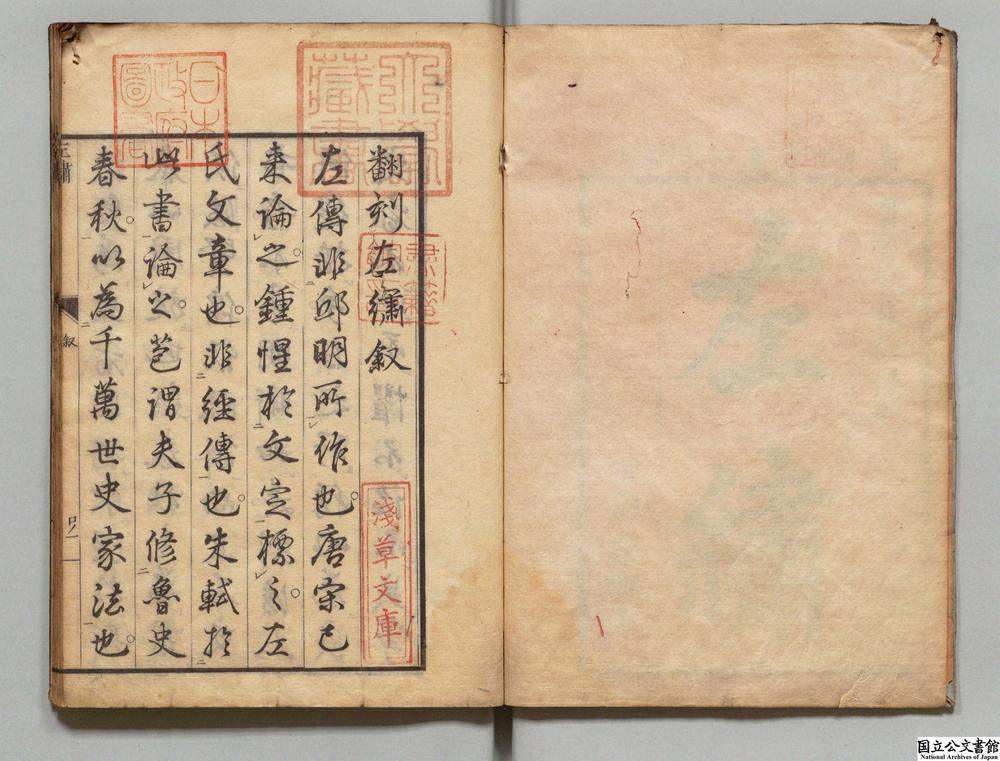 翻刻左繡叙
左傳非邱明所作也。唐宋已
来論之。鍾惺於文定標之。左
氏文章也。非經傳也。朱軾於
此書論之。芭謂夫子修魯史
春秋。以為千萬世史家法也。
左繡
叙
日本政府圖書
淺草文庫
国立公文書館
National Archives of Japan